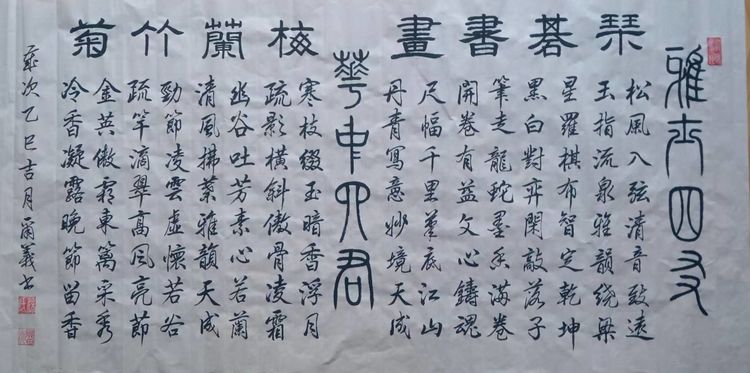 雅士四友
琴
松風入弦清音致遠
玉指流泉雅韻繞梁
碁
星羅棋布智定乾坤
黑白對弈閑敲落子
書
筆走龍蛇墨香滿卷
開卷有益文心鑄魂
畫
尺幅千里筆底江山
丹青寫意妙境天成
華中四君
梅
寒枝綴玉暗香浮月
疏影橫斜傲骨凌霜
蘭
幽谷吐芳素心若蘭
清風拂葉雅韻天成
竹
勁節凌雲虛懷若谷
疏竿滴翠高風亮節
菊
金英傲霜東籬采秀
冷香凝露晚節留香
歲次乙巳吉月爾義書